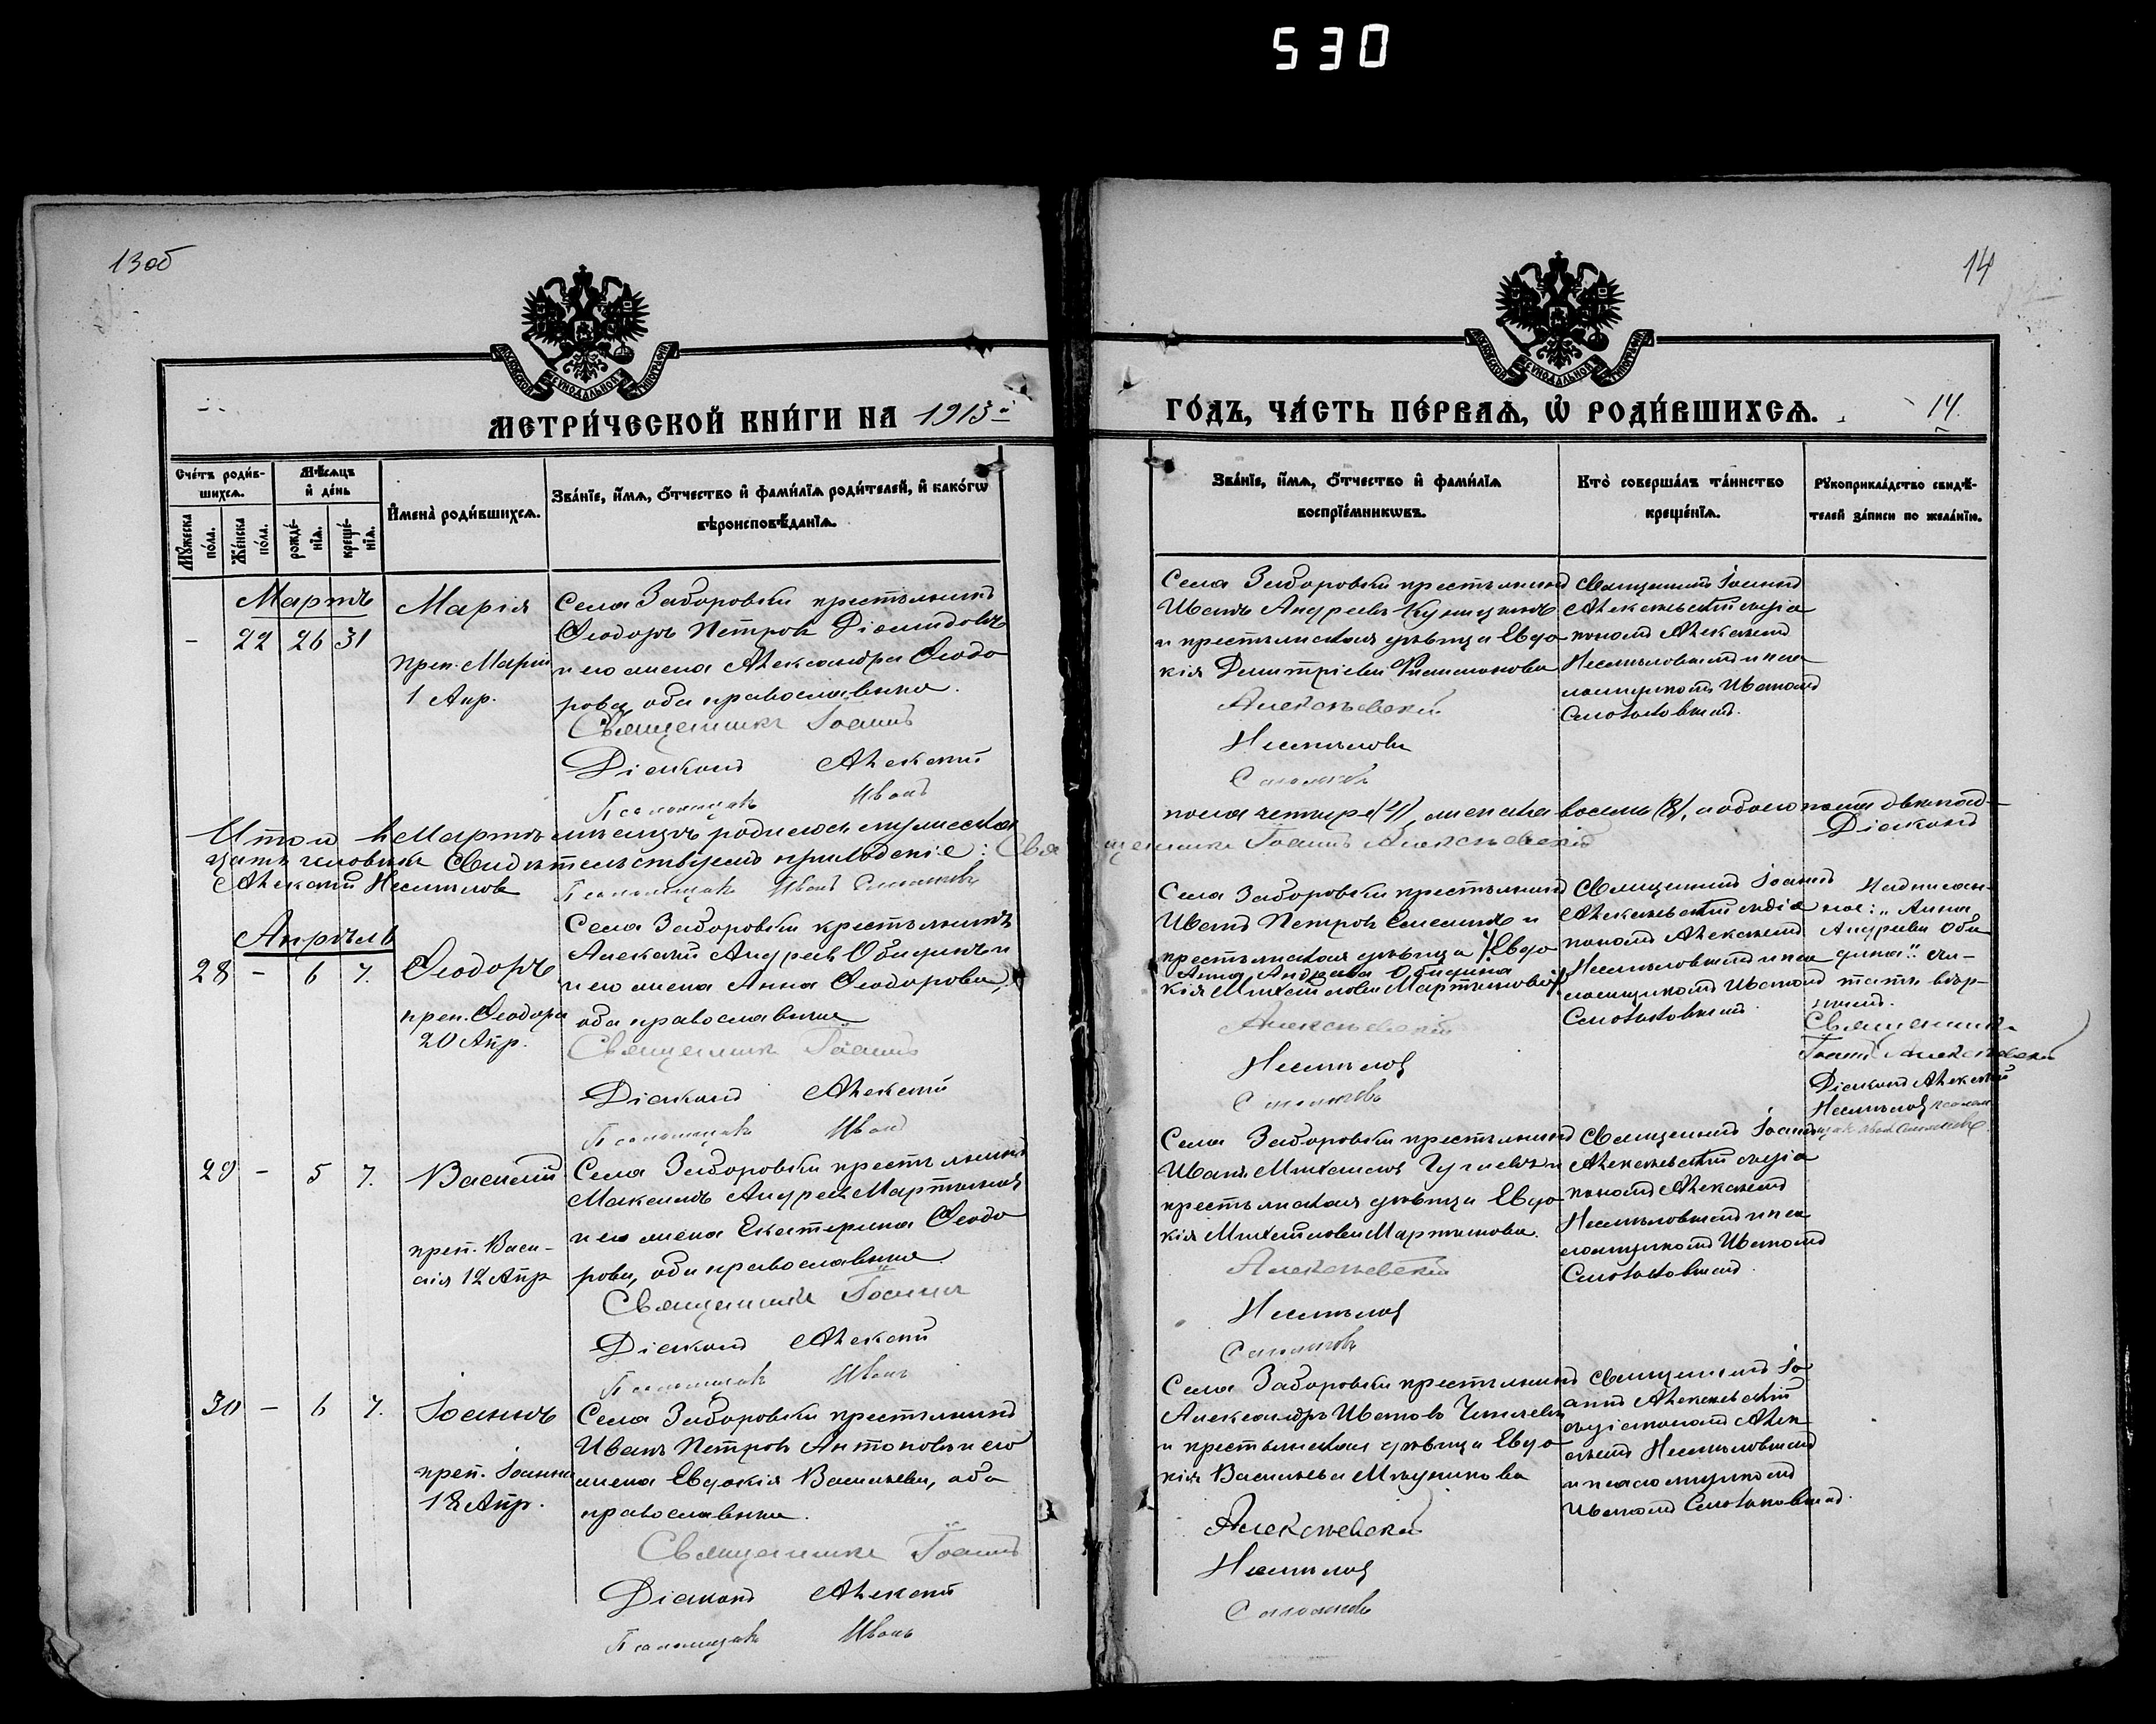 530
13об
14
МЕТРИ́ЧЕСКОЙ КНИ́ГИ НА 1913й
ГО́ДЪ, ЧА́СТЬ ПЕ́РВАѦ, Ѡ҆ РОДИ́ВШИХСѦ.
14.
Сче́тъ роди́в-
шихсѧ.
Мѣ́сѧцъ
и҆ де́нь
И҆мена̀ роди́вшихсѧ.
Зва́нїе, и҆́мѧ, ѻ҆́тчество и҆ фами́лїѧ роди́телей, и҆ како́гѡ
вѣроисповѣ́данїѧ.
Мꙋ́жеска
по́ла.
Же́нска
по́ла.
рожде́-
нїѧ.
креще́-
нїѧ.
Зва́нїе, и҆́мѧ, ѻ҆́тчество и҆ фами́лїѧ
воспрїе́мникѡвъ.
Кто̀ соверша́лъ та́инство
креще́нїѧ.
Рꙋкоприкла́дство свидѣ́-
телей за́писи по жела́нїю.
Мартъ
- 22 26 31
Марія
преп. Маріи
1 Апр.
Села Заборовки крестьянинъ
Ѳеодоръ Петровъ Діомидовъ
и его жена Александра Ѳеодо
рова, оба православные.
Священникъ Іоаннъ
Діаконъ Алексій
Псаломщикъ Иванъ
Села Заборовки крестьянинъ
Иванъ Андреевъ
и крестьянская дѣвица Евдо
кія Димитріева
Алексѣевскій
Несмѣловъ
Священникъ Іоаннъ
Алексѣевскій съ діа
кономъ Алексѣемъ
Несмѣловымъ и пса
ломщикомъ Иваномъ
Итого въ Мартѣ мѣсяцѣ родилось мужеска
пола четыре (4), женска восемь (8), а обоего пола двѣнад-
цать человѣкъ Свидѣтельствуемъ: Священникъ Іоаннъ Алексѣевскій
Діаконъ
Алексій Несмѣловъ Псаломщикъ Иванъ
Апрѣль
28 - 6 7.
Ѳеодоръ
преп. Ѳеодора
20 Апр.
Села Заборовки крестьянинъ
Алексѣй Андреевъ Обидинъ и
и его жена Анна Ѳеодорова,
оба православные
Священникъ Іоаннъ
Діаконъ Алексій
Псаломщикъ Иванъ
Села Заборовки крестьянинъ
Иванъ Петровъ и
крестьянская дѣвица Евдо
Анна Андреева Обидина
кія Михайлова Мартынова
Алексѣевскій
Несмѣловъ
Священникъ Іоаннъ
Алексѣевскій съ діа
кономъ Алексѣемъ
Несмѣловымъ и пса
ломщикомъ Иваномъ
Надписан-
ное: „Анна
Андреева Оби
дина“ счи-
тать вѣр-
нымъ.
Священникъ
Іоаннъ Алексѣевскій
Діаконъ Алексій
Несмѣловъ
29 - 5 7.
Василій
преп. Васи-
лія 12 Апр
Села Заборовки крестьянинъ
Максимъ Андреевъ Мартыновъ
и его жена Екатерина Ѳеодо
рова, оба православные
Священникъ Іоаннъ
Діаконъ Алексій
Псаломщикъ Иванъ
Села Заборовки крестьянинъ
Иванъ Михаиловъ и
крестьянская дѣвица Евдо
кія Михайлова Мартынова.
Алексѣевскій
Несмѣловъ
Священникъ Іоаннъ
Алексѣевскій съ діа
кономъ Алексѣемъ
Несмѣловымъ и пса
ломщикомъ Иваномъ
30 - 6 7.
Іоаннъ
преп. Іоанна
18 Апр.
Села Заборовки крестьянинъ
Иванъ Петровъ Антоновъ и его
жена Евдокія Васильева, оба
православные.
Священникъ Іоаннъ
Діаконъ Алексій
Псаломщикъ Иванъ
Села Заборовки крестьянинъ
Александръ Ивановъ
и крестьянская дѣвица Евдо
кія Васильева
Алексѣевскій
Несмѣловъ
Священникъ Іо
аннъ Алексѣевскій
съ діакономъ Алек
сѣемъ Несмѣловымъ
и псаломщикомъ
Иваномъ